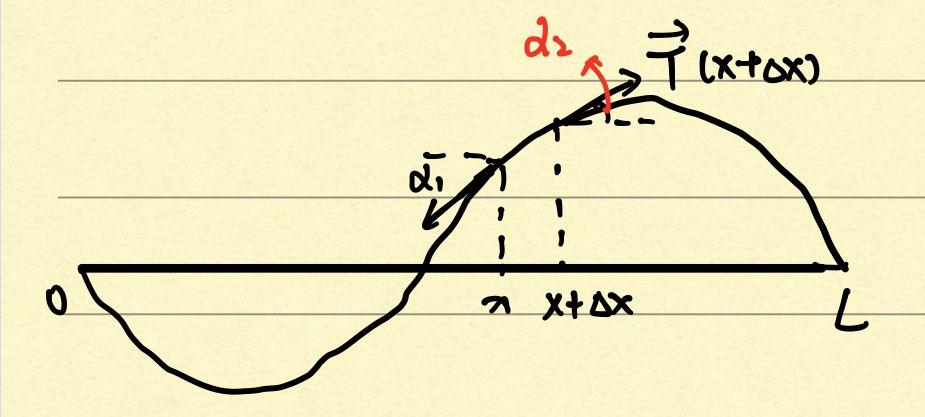 α₂
T⃗ (x+Δx)
α₁
0 x x+Δx L